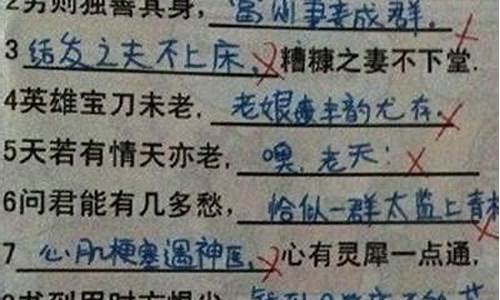 2穷则独善其身，富则妻妾成群。
3结发之夫不上床，糟糠之妻不下堂.
4英雄宝刀未老，老娘丰韵尤存.
5天若有情天亦老，噢，老天！
6问君能有几多愁，恰似一群太监上青
7心肌梗塞遇神医，心有灵犀一点通，